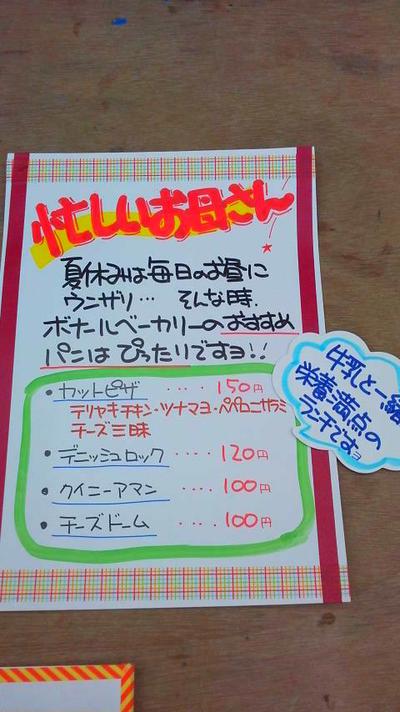 忙しいお母さん
夏休みは毎日のお昼に
ウンザリ… そんな時.
ボナールベーカリーのおすすめ
パンは ぴったりですョ!!
・カットピザ ････150円
テリヤキチキン・ツナマヨ・ペパロニサラミ
チーズ三昧
・デニッシュロック ････120円
・クイニーアマン ････100円
・チーズドーム ････100円
牛乳と一緒
栄養満点の
ランチですョ